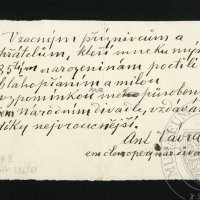 Vzácným příznivcům a
přátelům, kteří mne k mým
85tým narozeninám poctili
blahopřáním a milou
vzpomínkou na mé působení
v národním divadle, vzdávám
díky nejvroucnější.
Ant. Vávra
em. člen opery nár. divadla